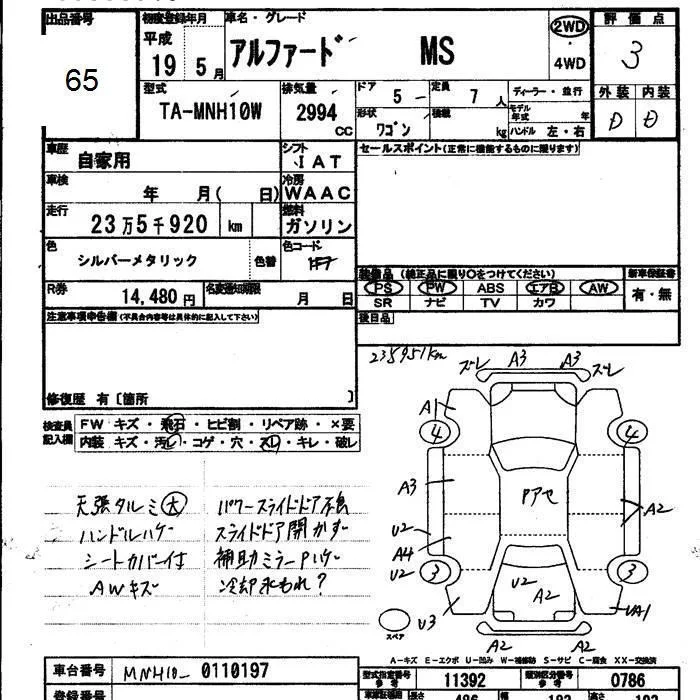 出品番号
65
初度登録年月
平成
19 5月
車名・グレード
アルファード MS
2WD
4WD
評価点
3
外装 内装
D D
型式
TA-MNH10W
排気量
2994 CC
ドア 5
定員 7人
形状 ワゴン
積載 kg
ディーラー・並行
モデル年式 年
ハンドル 左・右
車歴 自家用
シフト IAT
車検 年 月( 日)
冷房 WAAC
走行 23万5千920 km
燃料 ガソリン
色 シルバーメタリック
色替
色コード
R券 14,480円
名変通知期限 月 日
セールスポイント(正常に機能するものに限ります)
装備品 (純正品に限り○をつけてください)
PS PW ABS エアB AW
SR ナビ TV カワ
新車保証書
有・無
後日品
注意事項申告欄(不具合内容等は具体的に記入して下さい)
修復歴 有〔箇所 〕
検査員記入欄
FW キズ・飛石・ヒビ割・リペア跡・×要
内装 キズ・汚レ・コゲ・穴・スレ・キレ・破レ
天張タルミ大
ハンドルハゲ
シートカバー付
AWキズ
パワースライドドア不良
スライドドア開かず
補助ミラーPハゲ
冷却水もれ?
235951km
ズレ A3 A3 ズレ
A1
4 4
A3
Pアセ
A2
U2
A4
U2
3 3
U2
A2
U3
UA1
A2 A2
スペア
A-キズ E-エクボ U-凹み W-補修跡 S-サビ C-腐食 XX-交換済
車台番号 MNH10- 0110197
登録番号
型式指定番号 参考 11392
類別区分番号 参考 0786